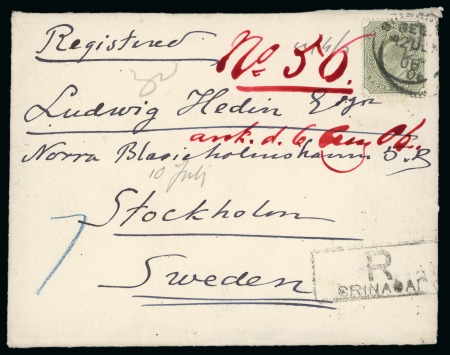 Registered
No 50.
Ludwig Hedin Esqr
ank. d. 6 Aug 06.
Norra Blasieholmshamn 5.B
10 Juli
Stockholm
7
Sweden
R
SRINAGAR